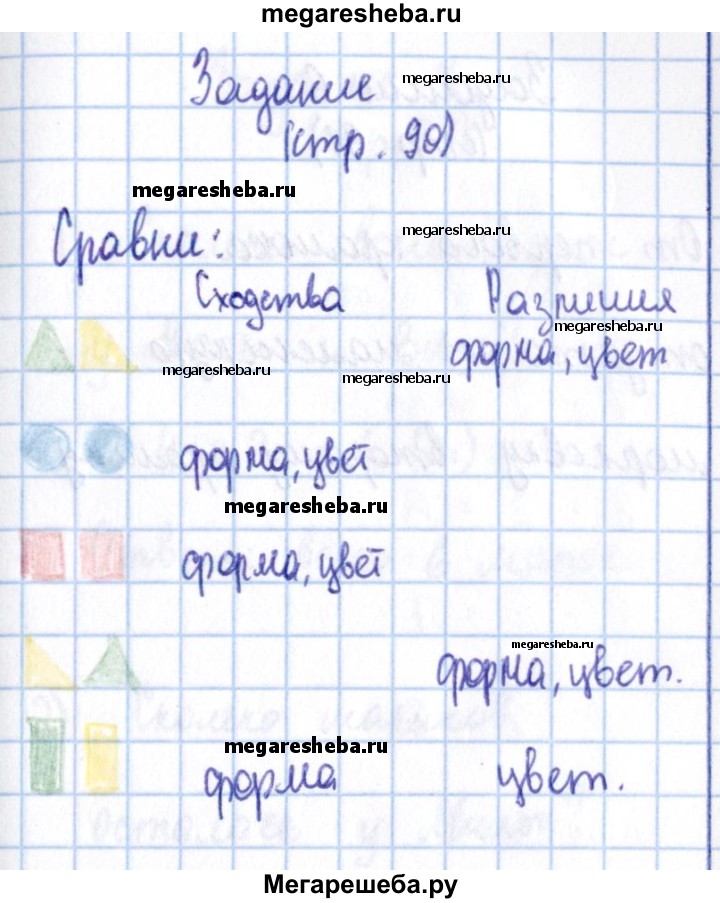 megaresheba.ru
Задание
megaresheba.ru
(стр. 90)
megaresheba.ru
Сравни:
megaresheba.ru
Сходства Различия
megaresheba.ru
форма, цвет
megaresheba.ru
megaresheba.ru
форма, цвет
megaresheba.ru
форма, цвет
megaresheba.ru
форма, цвет.
megaresheba.ru
форма цвет.
Мегарешеба.ру